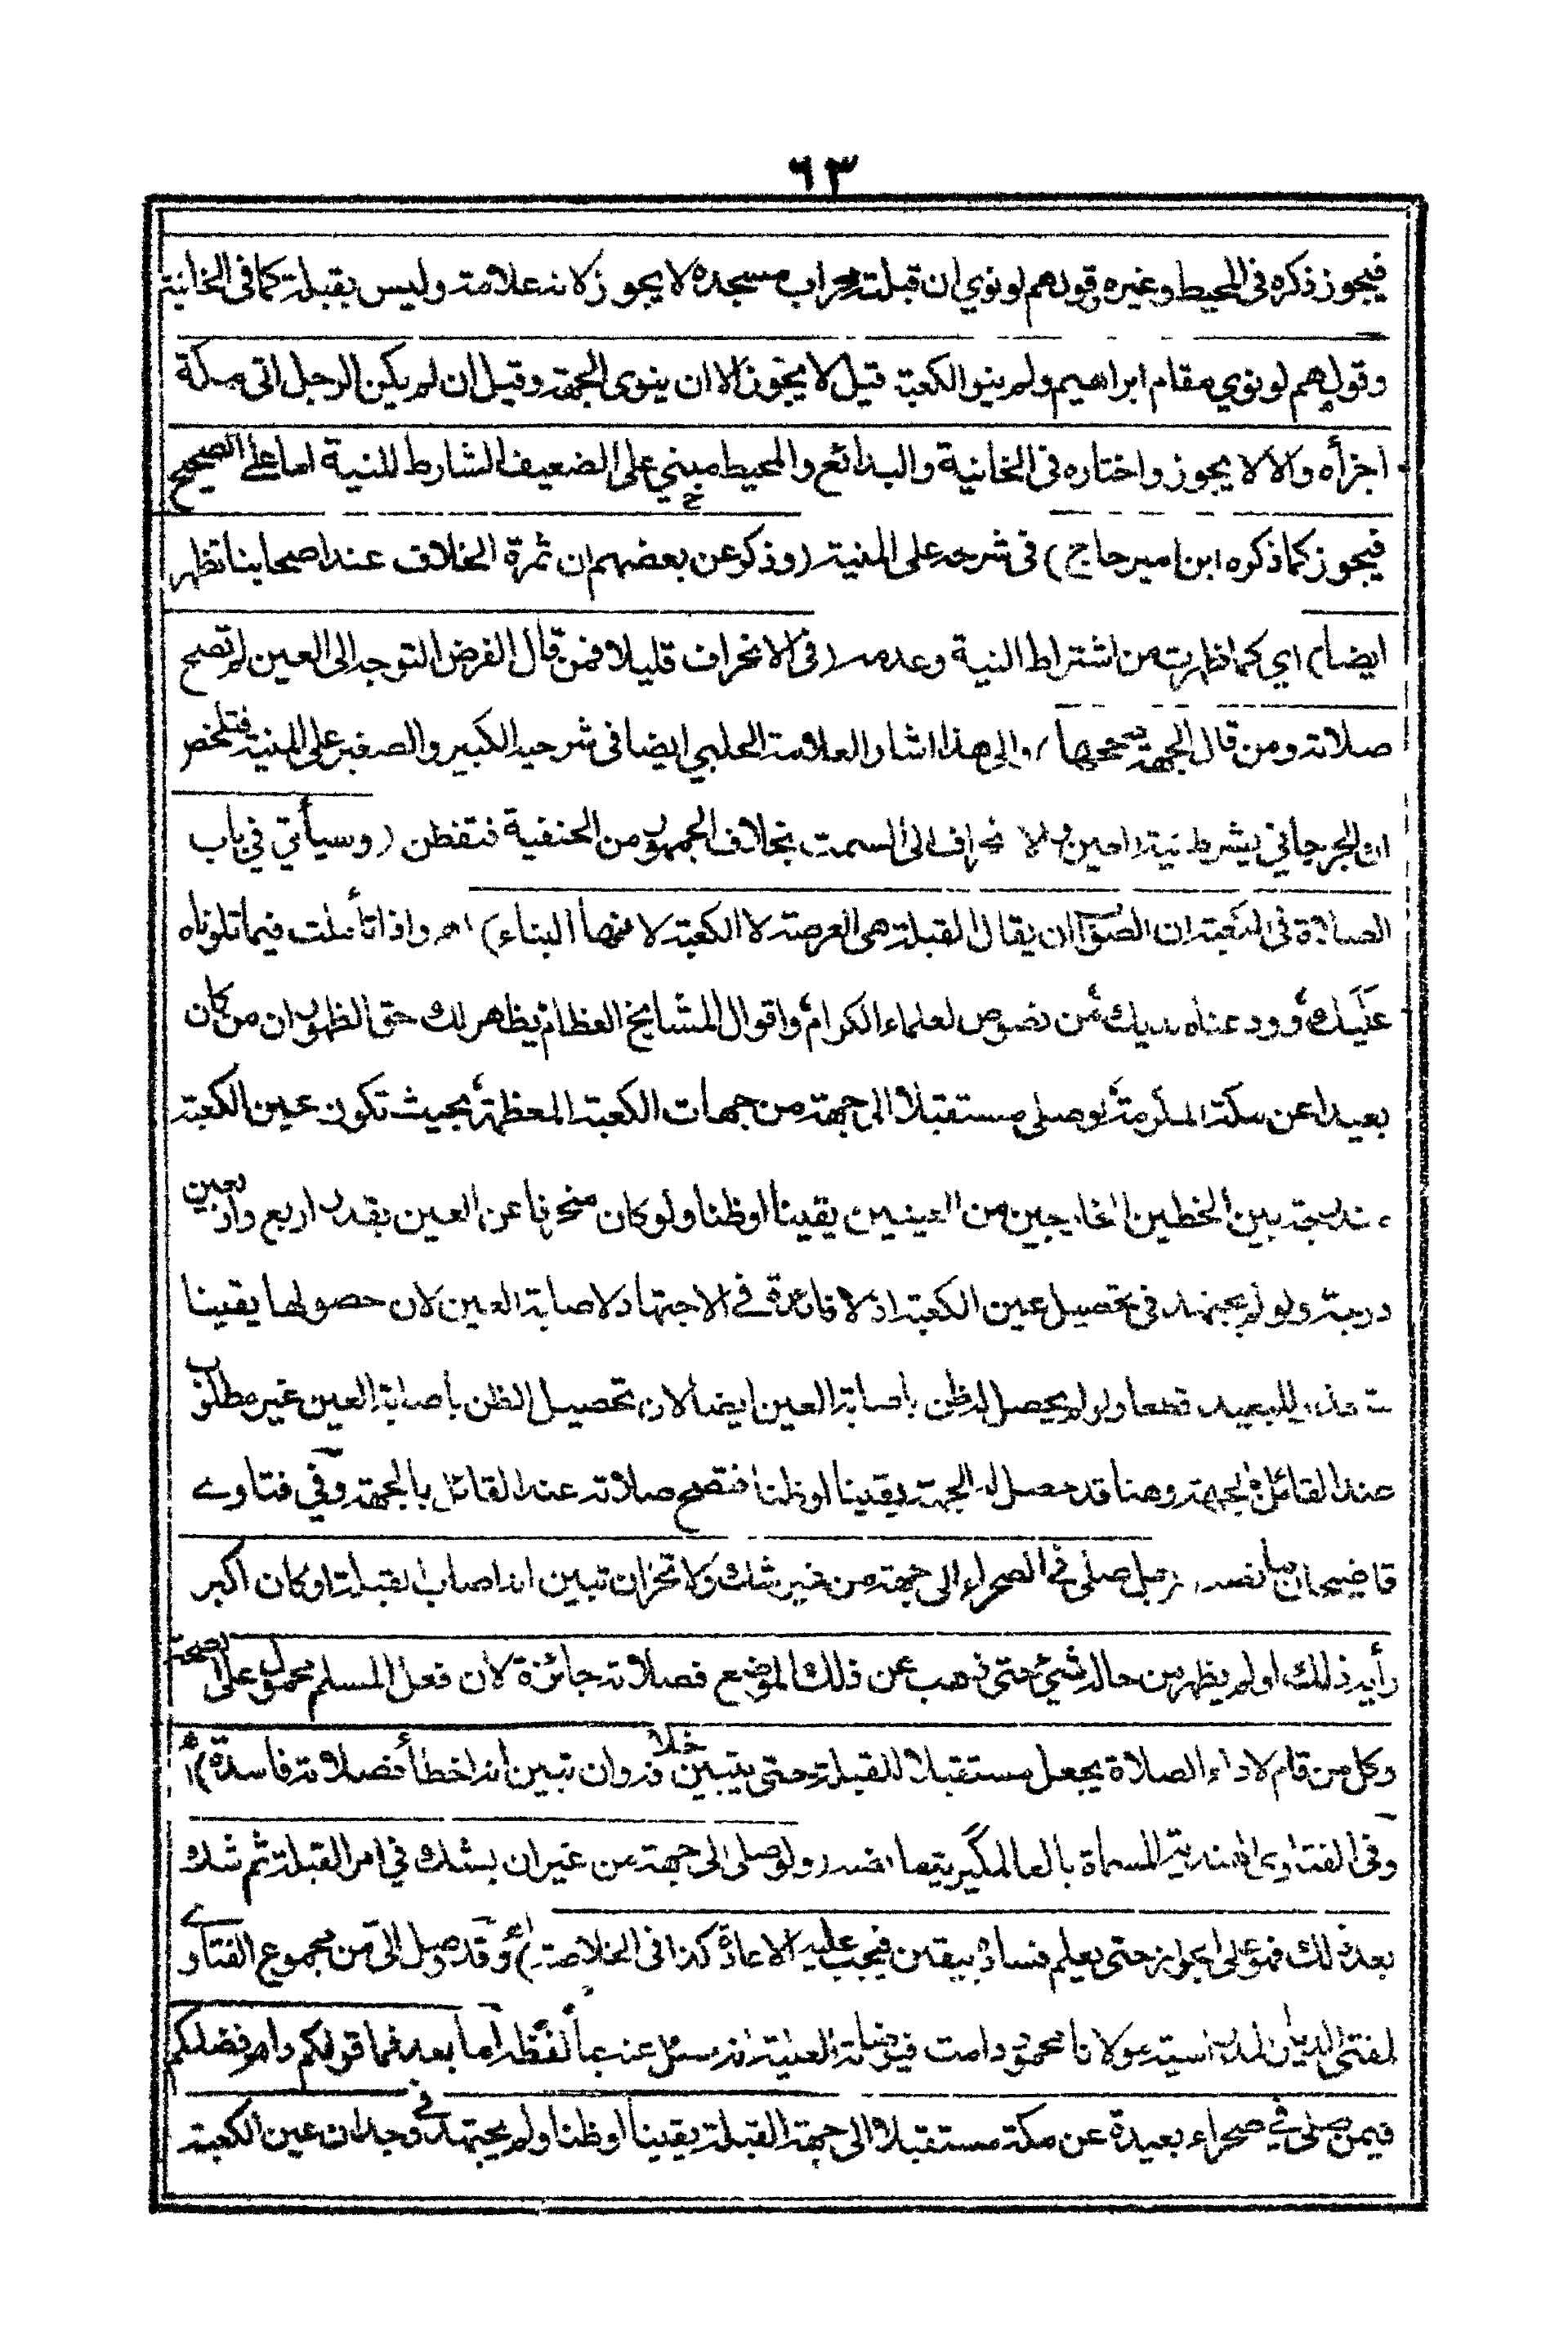 ٦٣
فيجوز ذكره في المحيط وغيره وقولهم لو نوي ان قبلته محراب مسجده لا يجوز لانه علامة وليس بقبلة كما في الخانية
وقولهم لو نوي مقام ابراهيم ولم ينو الكعبة قيل لا يجوز الا ان ينوى الجهة وقيل ان لم يكن الرجل اتى مكة
اجزأه والا لا يجوز واختاره في الخانية والبدائع والمحيط مبني على الضعيف الشارط للنية اما على الصحيح
فيجوز كما ذكره ابن امير حاج) في شرحه على المنية (وذكر عن بعضهم ان ثمرة الخلاف عند اصحابنا تظهر
ايضا) اي كما ظهرت من اشتراط النية وعدمه (في الانحراف قليلا فمن قال الفرض التوجه الى العين لم تصح
صلاته ومن قال الجهة صححها) والى هذا اشار العلامة الحلبي ايضا في شرحيه الكبير والصغير على المنية فتلخص
ان الجرجاني يشرط نية العين ولا انحراف الى السمت بخلاف الجمهور من الحنفية فتفطن (وسيأتي في باب
الصلاة في الكعبة ان الصواب ان يقال القبلة هي العرصة لا الكعبة لانها البناء) اه واذا تأملت فيما تلوناه
عليك، وودعناه لديك، من نصوص العلماء الكرام، واقوال المشايخ العظام، يظهر لك حق الظهور ان من كان
بعيدا عن مكة المكرمة، لو صلى مستقبلا الى جهة من جهات الكعبة المعظمة، بحيث تكون عين الكعبة
مندرجة بين الخطين الخارجين من العينين يقينا او ظنا ولو كان منحرفا عن العين بقدر اربع واربعين
درجة ولو لم يجتهد في تحصيل عين الكعبة اذ لا فائدة في الاجتهاد لاصابة العين لان حصولها يقينا
متعذر للبعيد قطعا ولو لم يحصل له ظن باصابة العين ايضا لان تحصيل الظن باصابة العين غير مطلوب
عند القائل بالجهة وهنا قد حصل له الجهة يقينا او ظنا فتصح صلاته عند القائل بالجهة وفي فتاوى
قاضيخان ما نصه، رجل صلى في الصحراء الى جهة من غير شك ولا تحر ان تبين انه اصاب القبلة او كان اكبر
رأيه ذلك، او لم يظهر من حاله شيئ حتى ذهب عن ذلك الموضع فصلاته جائزة لان فعل المسلم محمول على الصحة
وكل من قام لاداء الصلاة يجعل مستقبلا للقبلة حتى يتبين خلافه وان تبين انه اخطأ فصلاته فاسدة) اه
وفي الفتاوى الهندية المسماة بالعالمگيرية ما نصه (ولو صلى الى جهة من غير ان يشك في امر القبلة ثم شك
بعد ذلك فهو على الجواز حتى يعلم فساده بيقين فيجب عليه الاعادة كذا في الخلاصة) اه وقد وصل الى من مجموع الفتاوى
لمفتي الديار المدراسية مولانا محمود دامت فيوضاته العلية انه سئل عنه بما لفظه اما بعد فما قولكم دام فضلكم
فيمن صلى في صحراء بعيدة عن مكة مستقبلا الى جهة القبلة يقينا او ظنا ولم يجتهد في وجدان عين الكعبة